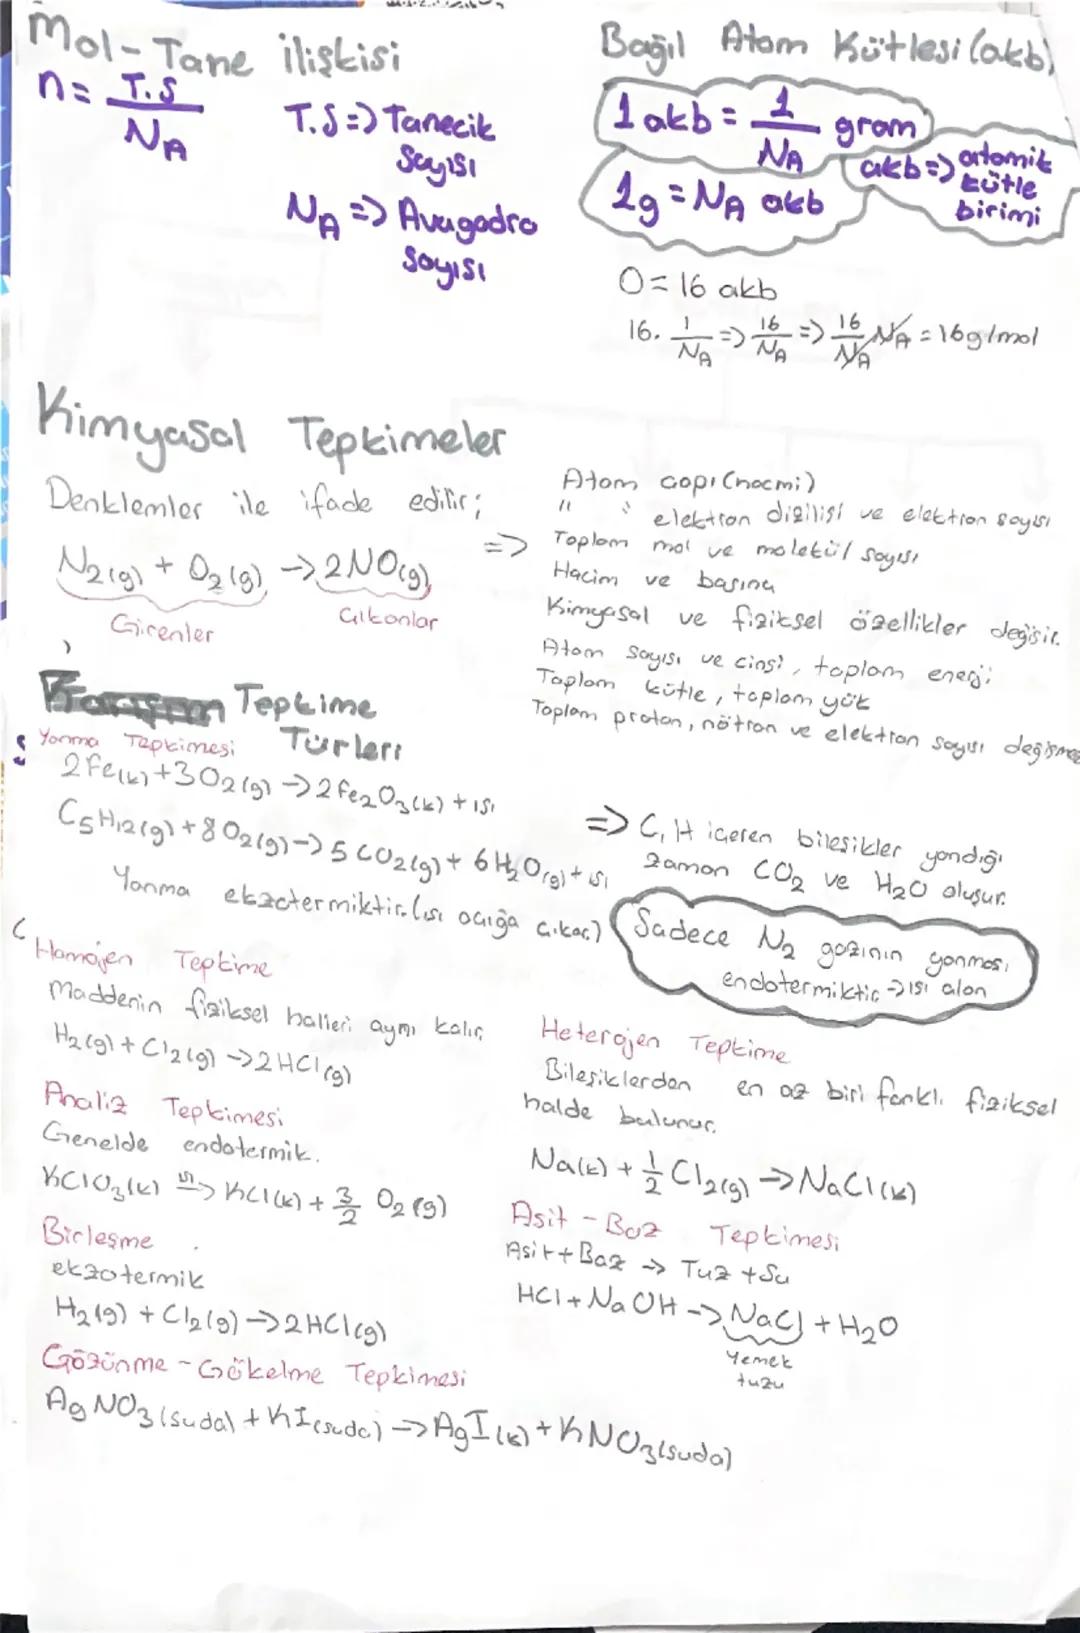 Mol-Tane ilişkisi
n = T.S / NA
T.S => Tanecik
Sayısı
NA => Avagadro
Sayısı
Bağıl Atom Kütlesi (akb)
1 akb = 1 / NA gram
akb => atomik
kütle
birimi
1g = NA akb
O = 16 akb
16. 1/NA => 16/NA => 16/NA NA = 16g/mol
Kimyasal Tepkimeler
Denklemler ile ifade edilir;
N2(g) + O2(g) -> 2NO(g)
Girenler
Çıkanlar
=>
Atom çapı (hacmi)
" " elektron dizilişi ve elektron sayısı
Toplam mol ve molekül sayısı
Hacim ve basınç
Kimyasal ve fiziksel özellikler değişir.
Atom sayısı ve cinsi, toplam enerji
Toplam kütle, toplam yük
Toplam proton, nötron ve elektron sayısı değişmez
Tepkime
Türleri
Yanma Tepkimesi
2Fe(k) + 3O2(g) -> 2Fe2O3(k) + ısı
C5H12(g) + 8O2(g) -> 5CO2(g) + 6H2O(g) + ısı
Yanma ekzotermiktir. (ısı açığa çıkar)
=> C, H içeren bileşikler yandığı
zaman CO2 ve H2O oluşur.
Sadece N2 gazının yanması
endotermiktir -> ısı alan
Homojen Tepkime
Maddenin fiziksel halleri aynı kalır.
H2(g) + Cl2(g) -> 2HCl(g)
Heterojen Tepkime
Bileşiklerden en az biri farklı fiziksel
halde bulunur.
Na(k) + 1/2 Cl2(g) -> NaCl(k)
Analiz Tepkimesi
Genelde endotermik.
KClO3(k) ısı-> KCl(k) + 3/2 O2(g)
Asit - Baz Tepkimesi
Asit + Baz -> Tuz + Su
HCl + NaOH -> NaCl + H2O
Yemek
tuzu
Birleşme
ekzotermik
H2(g) + Cl2(g) -> 2HCl(g)
Çözünme - Çökelme Tepkimesi
AgNO3(suda) + KI(suda) -> AgI(k) + KNO3(suda)